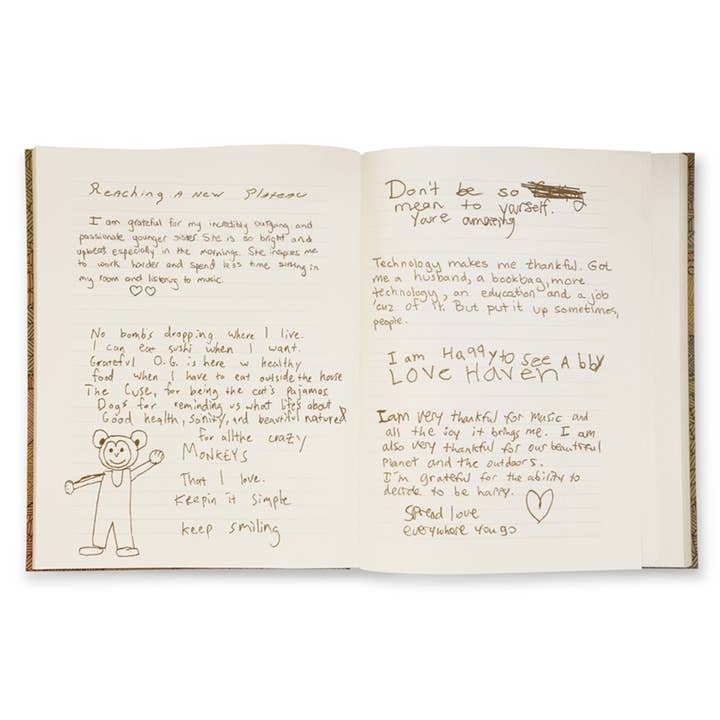 Reaching A New Plateau
I am grateful for my incredibly outgoing and
passionate younger sister. She is so bright and
upbeat especially in the mornings. She inspires me
to work harder and spend less time sitting in
my room and listening to music.
No bombs dropping where I live.
I can eat sushi when I want.
Grateful O.G. is here w healthy
food when I have to eat outside the house
The Cuse, for being the cat's pajamas
Dogs for reminding us what life's about
Good health, sanity, and beautiful nature
for all the crazy
MONKEYS
That I love.
Keepin it simple
keep smiling
Don't be so
mean to yourself.
You're amazing
Technology makes me thankful. Got
me a husband, a bookbag, more
technology, an education and a job
'cuz of it. But put it up sometimes,
people.
I am Happy to see Abby
LOVE Haven
I am very thankful for music and
all the joy it brings me. I am
also very thankful for our beautiful
planet and the outdoors.
I'm grateful for the ability to
decide to be happy.
Spread love
everywhere you go